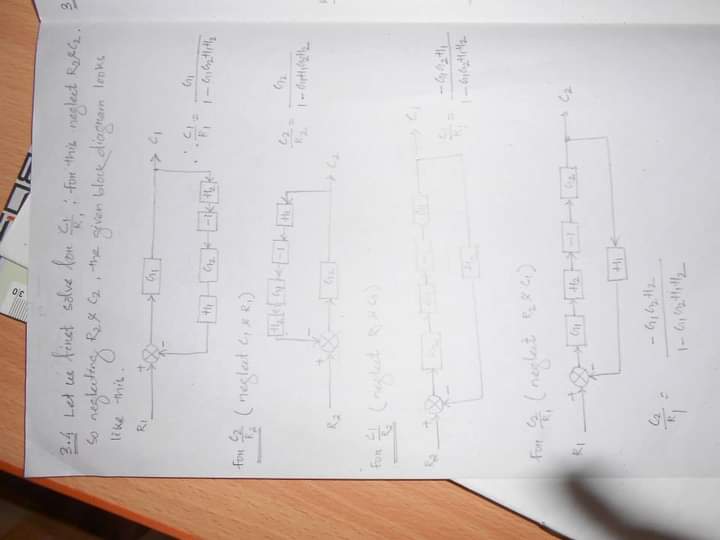 30
3.4 Let us first solve for C1/R1 ; for this neglect R2 & C2.
So neglecting R2 & C2, the given block diagram looks
like this.
R1 + - G1 C1
H1 G2 -1 H2
∴ C1/R1 = G1 / 1 - G1G2H1H2
For C2/R2 (neglect C1 & R1)
H2 G1 -1 H1
R2 + - G2 C2
C2/R2 = G2 / 1 - G1H1G2H2
For C1/R2 (neglect R1 & C2)
R2 + - C1
= -G1G2H1 / 1 - G1G2H1H2
For C2/R1 (neglect R2 & C1)
R1 + - G1 H2 -1 G2 C2
H1
C2/R1 = -G1G2H2 / 1 - G1G2H1H2